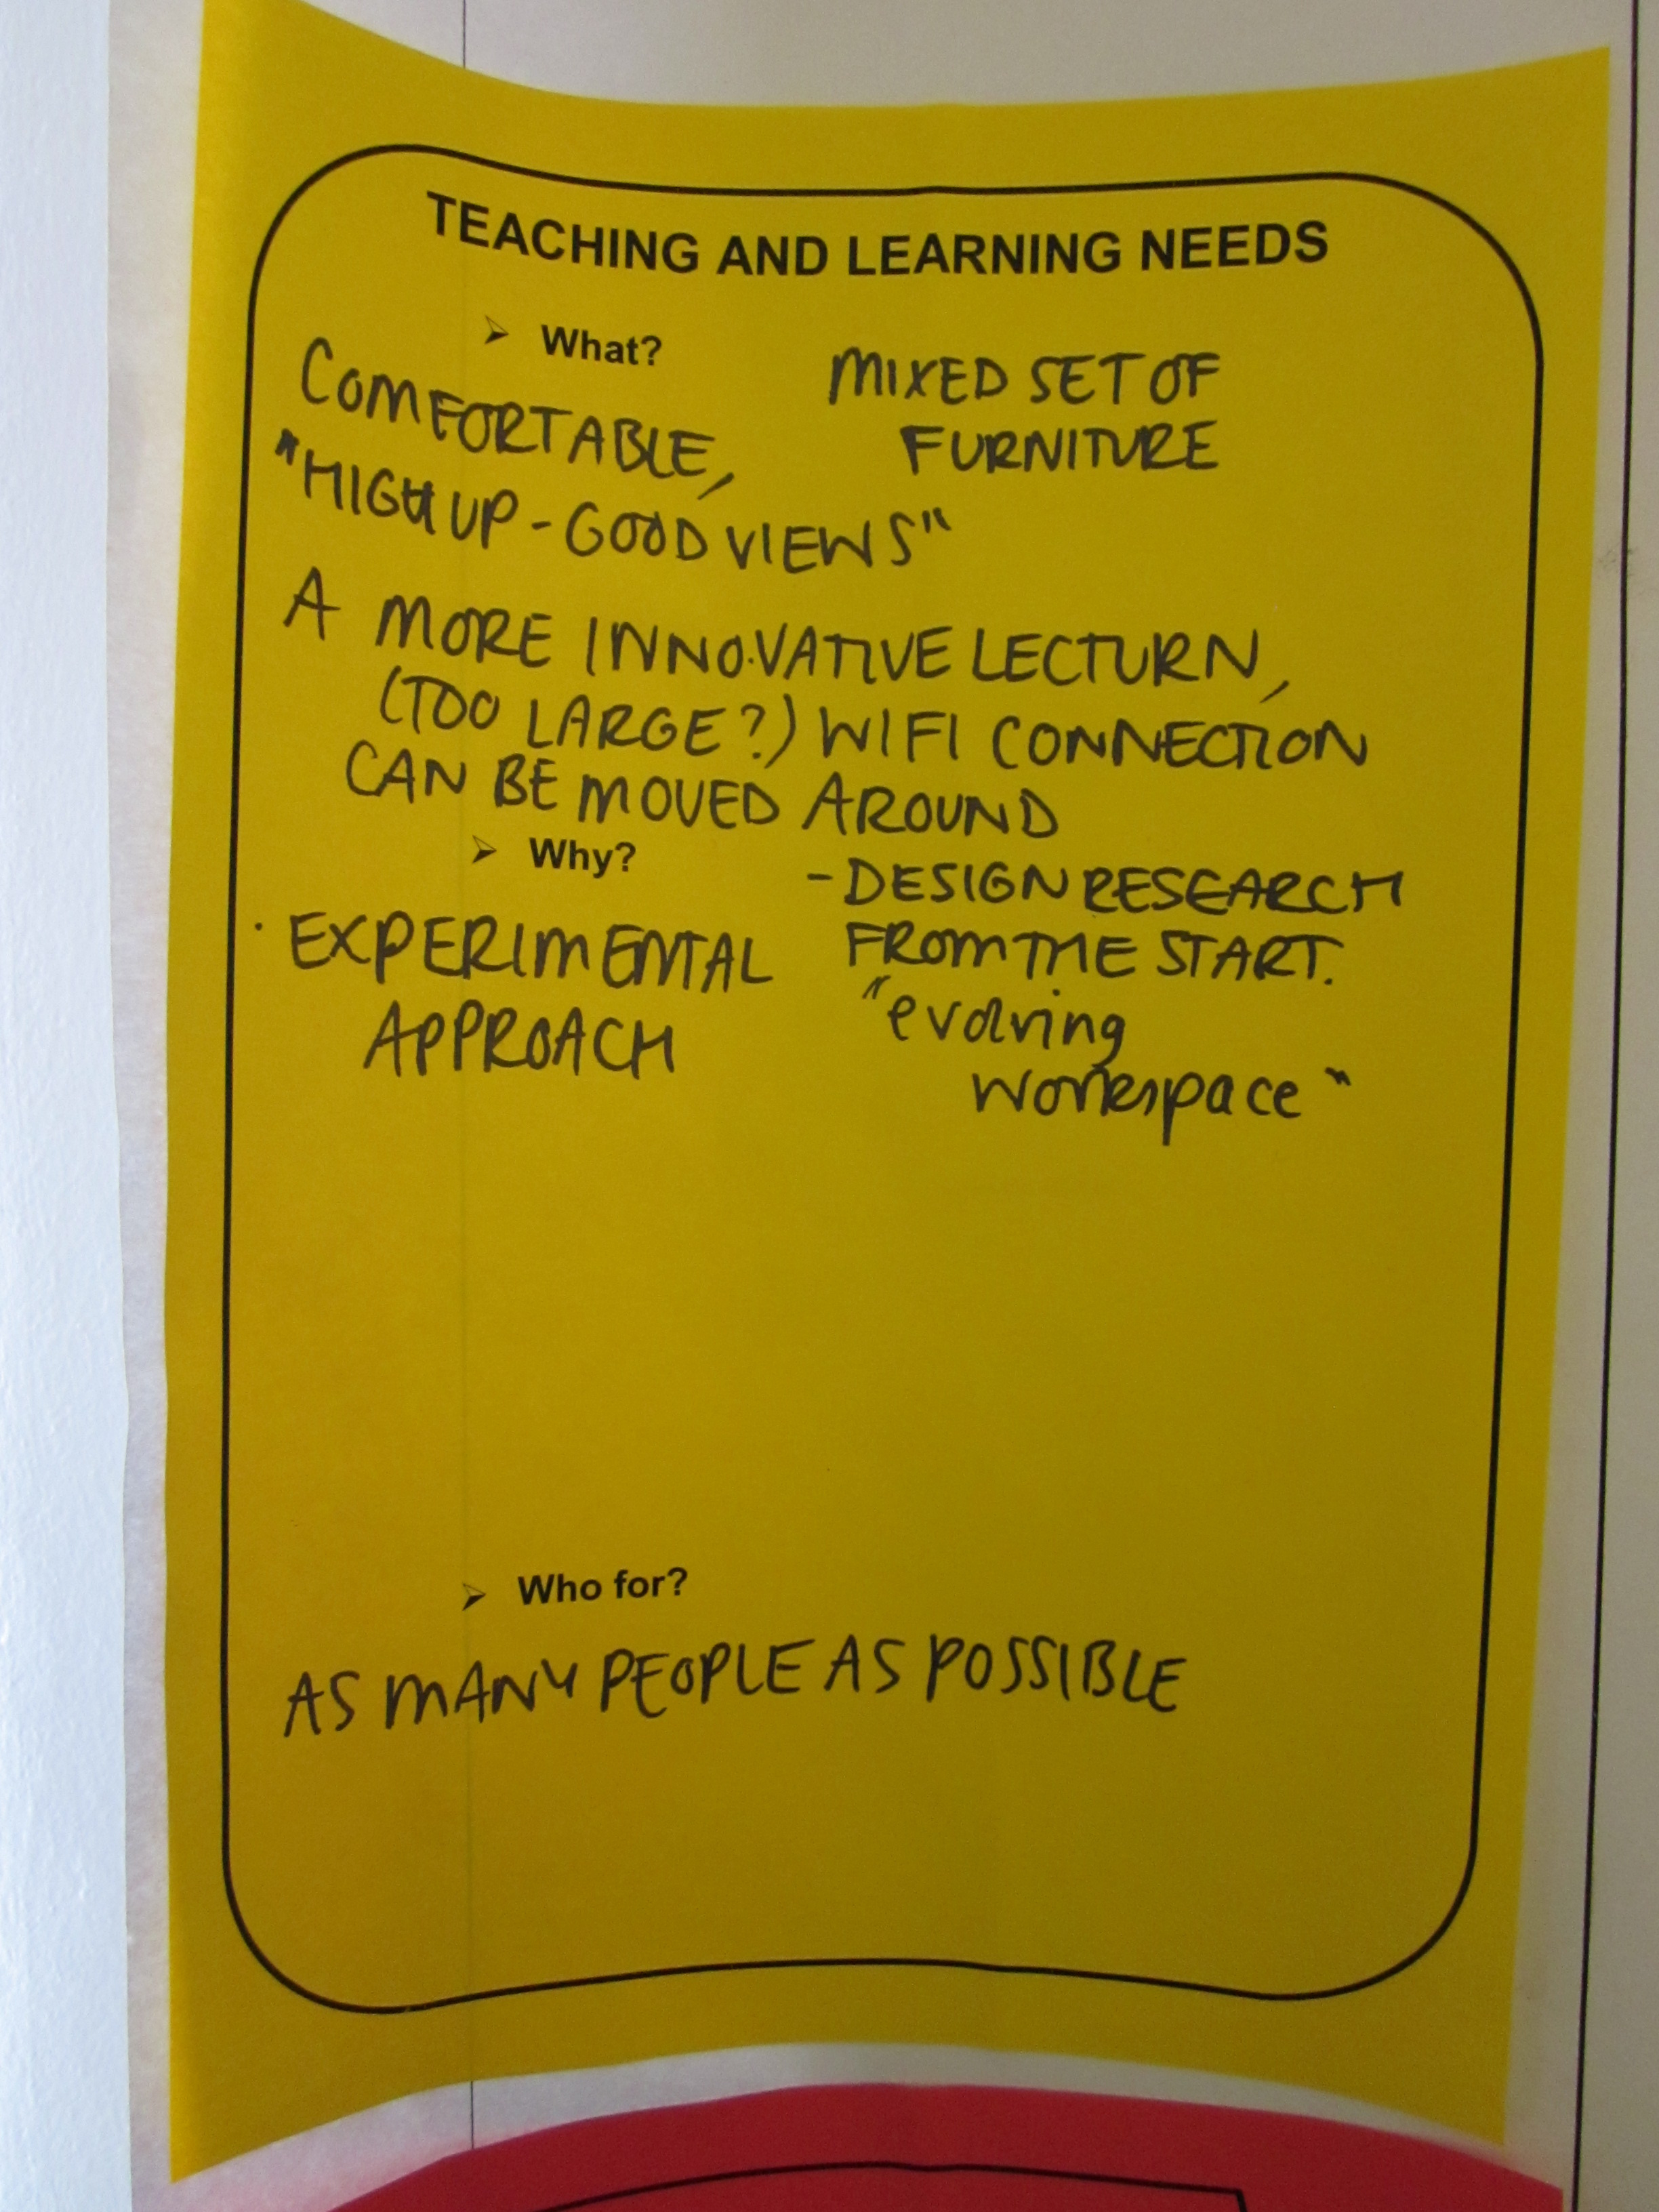 TEACHING AND LEARNING NEEDS
➢ What?
COMFORTABLE,
MIXED SET OF
FURNITURE
"HIGH UP - GOOD VIEWS"
A MORE INNOVATIVE LECTURN,
(TOO LARGE?) WIFI CONNECTION
CAN BE MOVED AROUND
➢ Why?
· EXPERIMENTAL
APPROACH
- DESIGN RESEARCH
FROM THE START.
"evolving
workspace"
➢ Who for?
AS MANY PEOPLE AS POSSIBLE